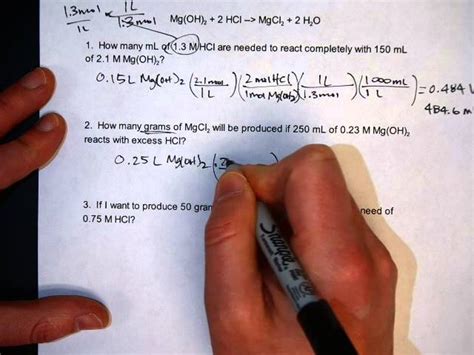 1.3mol × 1L
1L 1.3mol
Mg(OH)₂ + 2 HCl --> MgCl₂ + 2 H₂O
1. How many mL of 1.3 M HCl are needed to react completely with 150 mL
of 2.1 M Mg(OH)₂?
0.15L Mg(OH)₂ (2.1mol / 1L) (2molHCl / 1molMg(OH)₂) (1L / 1.3mol) (1000mL / 1L) = 0.484
484.6 m
2. How many grams of MgCl₂ will be produced if 250 mL of 0.23 M Mg(OH)₂
reacts with excess HCl?
0.25L Mg(OH)₂ (
3. If I want to produce 50 need of
0.75 M HCl?
Sharpie